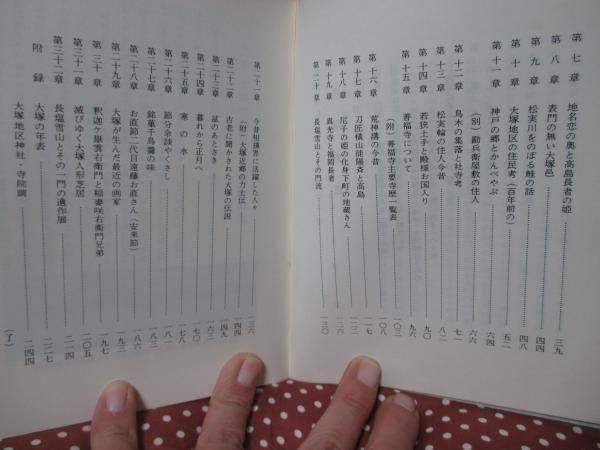 第七章 地名恋の奥と高島長者の姫 三九
第八章 表門の無い大塚邑 四四
第九章 松実川をのぼる鮭の話 四八
第十章 大塚地区の住民考(百年前の) 五二
第十一章 神戸の郷とかんべやぶ 六四
(別)勘兵衛屋敷の住人 六六
第十二章 鳥木の集落と社寺考 七一
第十三章 松実輪の住人今昔 八二
第十四章 若狭土手と殿様お国入り 九〇
第十五章 善福寺について 九六
(附)善福寺主要寺歴一覧表 一〇三
第十六章 荒神講の今昔 一〇八
第十七章 刀匠横山祐陽斎と高島 一一七
第十八章 尼子の姫の化身下町の地蔵さん 一二二
第十九章 真光寺と福岡長者
第二十章 長塩雪山とその門流 一三〇
第二十一章 今昔相撲界に活躍した人々 一三六
(附)大塚近郷の力士伝 一四四
第二十二章 古老に聞かされた大塚の伝説 一四九
第二十三章 盆のときき 一六二
第二十四章 暮れから正月へ 一六五
第二十五章 寒の水 一七〇
第二十六章 節分余談やくさし
第二十七章 銘菓千鳥羹の味 一八一
第二十八章 お直節二代目遠藤お直さん(安来節) 一八八
第二十九章 大塚が生んだ最近の画家 一九三
第三十章 釈迦ケ嶽雲右衛門と稲妻咲右衛門兄弟 一九七
第三十一章 滅びゆく大塚人形芝居 二〇五
第三十二章 長塩雪山とその一門の遺作展 二一四
附録 大塚の年表 二二七
大塚地区神社・寺院調 二四四
(了)